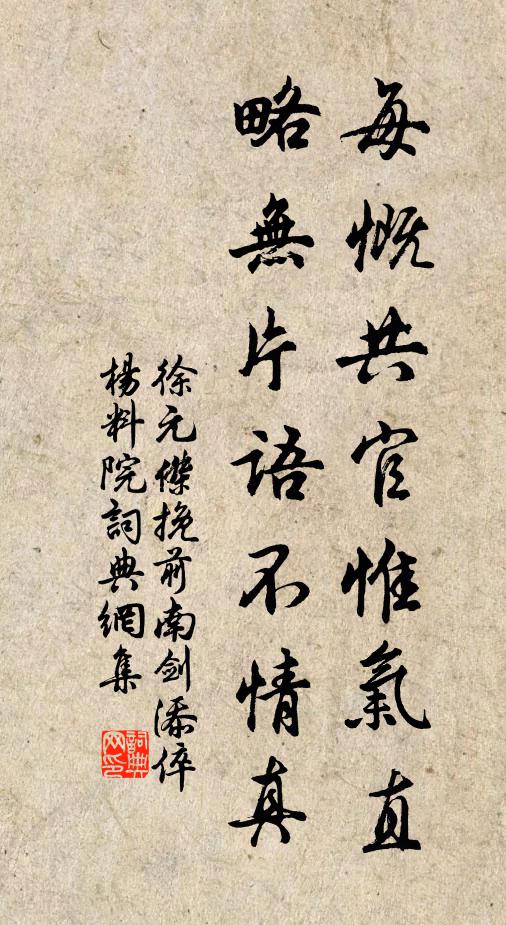 每慨共官惟氣直
略無片語不情真
徐元傑挽前南劍添倅
楊料院詞典網集
詞典网印